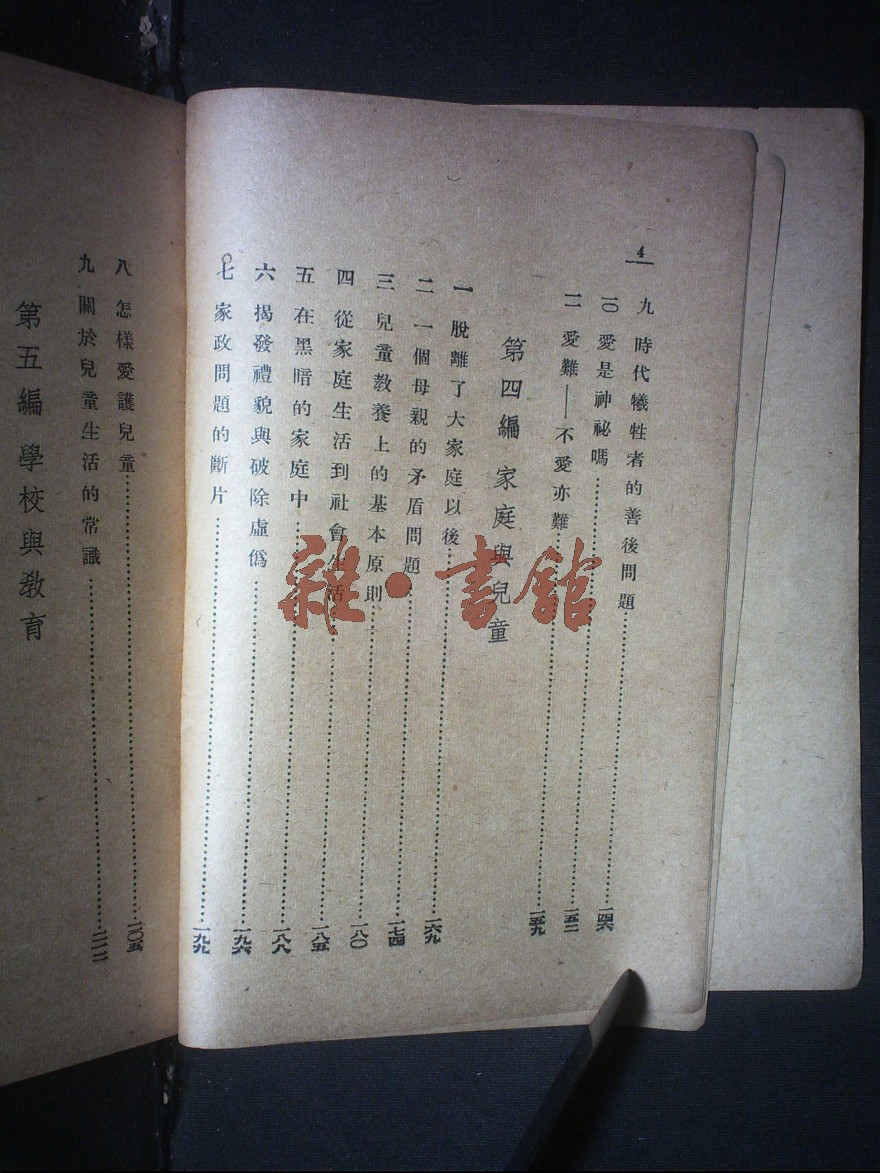 4
九 時代犧牲者的善後問題……一四六
一〇 愛是神祕嗎……一五二
一一 愛難——不愛亦難……一五九
第四編 家庭與兒童
一 脫離了大家庭以後……一六九
二 一個母親的矛盾問題……一七四
三 兒童教養上的基本原則……一八〇
四 從家庭生活到社會生活……一八五
五 在黑暗的家庭中……一八八
六 揭發禮貌與破除虛僞……一九六
七 家政問題的斷片……一九九
八 怎樣愛護兒童……二〇五
九 關於兒童生活的常識……二一二
第五編 學校與教育
雜·書館